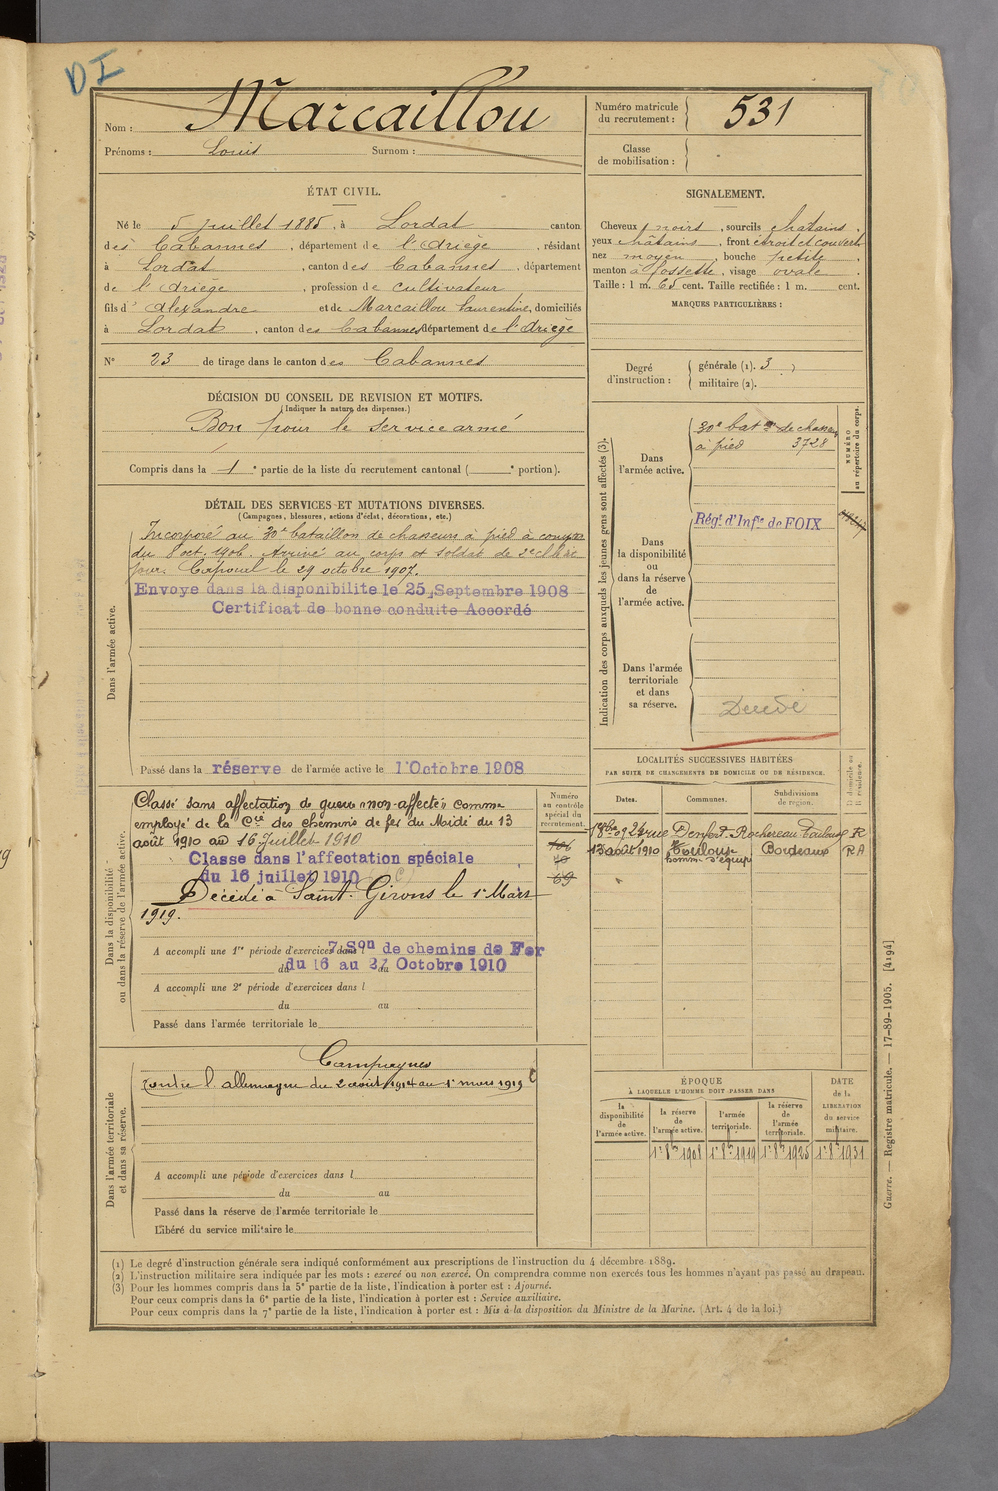 DI
Nom : Marcaillou
Prénoms : Louis Surnom :
Numéro matricule du recrutement : 531
Classe de mobilisation :
ÉTAT CIVIL.
Né le 5 juillet 1885, à Lordat canton
des Cabannes, département de l'Ariège, résidant
à Lordat, canton des Cabannes, département
de l'Ariège, profession de cultivateur
fils d'Alexandre et de Marcaillou Laurentine, domiciliés
à Lordat, canton des Cabannes département de l'Ariège
N° 23 de tirage dans le canton des Cabannes
SIGNALEMENT.
Cheveux noirs, sourcils chatains,
yeux châtains, front étroit et couvert
nez moyen, bouche petite,
menton à fossette, visage ovale.
Taille : 1 m. 65 cent. Taille rectifiée : 1 m. cent.
MARQUES PARTICULIÈRES :
Degré d'instruction : générale (1). 3
militaire (2).
DÉCISION DU CONSEIL DE REVISION ET MOTIFS.
(Indiquer la nature des dispenses.)
Bon pour le service armé
Compris dans la 1e partie de la liste du recrutement cantonal ( e portion).
DÉTAIL DES SERVICES ET MUTATIONS DIVERSES.
(Campagnes, blessures, actions d'éclat, décorations, etc.)
Dans l'armée active.
Incorporé au 30e bataillon de chasseurs à pied à compter
du 8 oct. 1906. Arrivé au corps et soldat de 2e classe
jour. Caporal le 29 octobre 1907.
Envoye dans la disponibilite le 25 Septembre 1908
Certificat de bonne conduite Accordé
Passé dans la réserve de l'armée active le 1 Octobre 1908
Indication des corps auxquels les jeunes gens sont affectés (3).
NUMÉRO au répertoire du corps.
Dans l'armée active.
30e baton de chasseurs
à pied 3728
Dans la disponibilité ou dans la réserve de l'armée active.
Régt d'Infie de FOIX
Dans l'armée territoriale et dans sa réserve.
Décédé
LOCALITÉS SUCCESSIVES HABITÉES
PAR SUITE DE CHANGEMENTS DE DOMICILE OU DE RÉSIDENCE.
Dates. Communes. Subdivisions de région. D domicile ou R résidence.
24 rue Denfert-Rochereau Toulouse R
13 août 1910 Toulouse Bordeaux RA
Dans la disponibilité ou dans la réserve de l'armée active.
Numéro au contrôle spécial du recrutement.
106
69
Classé sans affectation de guerre "non-affecté" comme
employé de la Cie des chemins de fer du Midi du 13
août 1910 au 16 Juillet 1910
Classe dans l'affectation spéciale
du 16 juillet 1910
Décédé à Saint-Girons le 1er Mars
1919.
A accompli une 1re période d'exercices dans 7 Son de chemins de Fer
du 16 au 27 Octobre 1910
A accompli une 2e période d'exercices dans l
du au
Passé dans l'armée territoriale le
Dans l'armée territoriale et dans sa réserve.
Campagnes
Contre l'allemagne du 2 août 1914 au 1er mars 1919
A accompli une période d'exercices dans l
du au
Passé dans la réserve de l'armée territoriale le
Libéré du service militaire le
ÉPOQUE
À LAQUELLE L'HOMME DOIT PASSER DANS
DATE de la LIBÉRATION du service militaire.
la disponibilité de l'armée active. la réserve de l'armée active. l'armée territoriale. la réserve de l'armée territoriale.
1er 8bre 1908 1er 8bre 1919 1er 8bre 1925 1er 8bre 1931
(1) Le degré d'instruction générale sera indiqué conformément aux prescriptions de l'instruction du 4 décembre 1889.
(2) L'instruction militaire sera indiquée par les mots : exercé ou non exercé. On comprendra comme non exercés tous les hommes n'ayant pas passé au drapeau.
(3) Pour les hommes compris dans la 5e partie de la liste, l'indication à porter est : Ajourné.
Pour ceux compris dans la 6e partie de la liste, l'indication à porter est : Service auxiliaire.
Pour ceux compris dans la 7e partie de la liste, l'indication à porter est : Mis à la disposition du Ministre de la Marine. (Art. 4 de la loi.)
Guerre. — Registre matricule. — 17-89-1905. [4194]